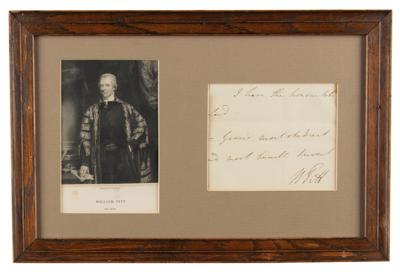 WILLIAM PITT
I have the honour to be
- Grace's most obedient
and most humble Servant
W Pitt